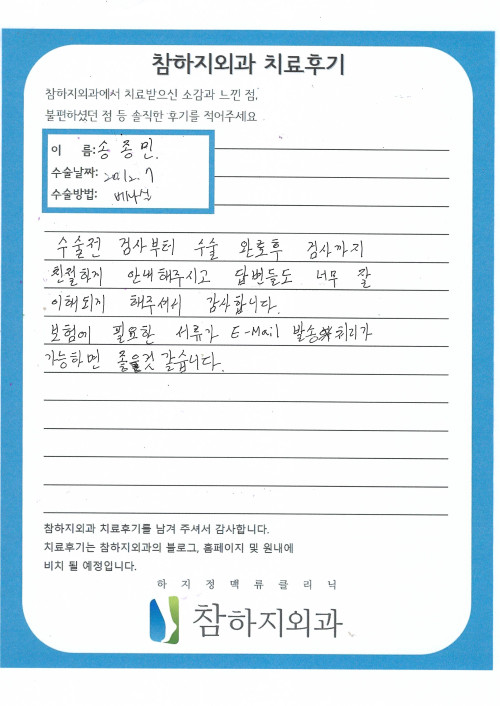 참하지외과 치료후기
참하지외과에서 치료받으신 소감과 느낀 점,
불편하셨던 점 등 솔직한 후기를 적어주세요
이 름: 송종민.
수술날짜: 2012.7
수술방법: 베나실
수술전 검사부터 수술 완료후 검사까지
친절하게 안내해주시고 답변들도 너무 잘
이해되게 해주셔서 감사합니다.
보험에 필요한 서류가 E-Mail 발송 처리가
가능하면 좋을것 같습니다.
참하지외과 치료후기를 남겨 주셔서 감사합니다.
치료후기는 참하지외과의 블로그, 홈페이지 및 원내에
비치 될 예정입니다.
하지정맥류클리닉
참하지외과